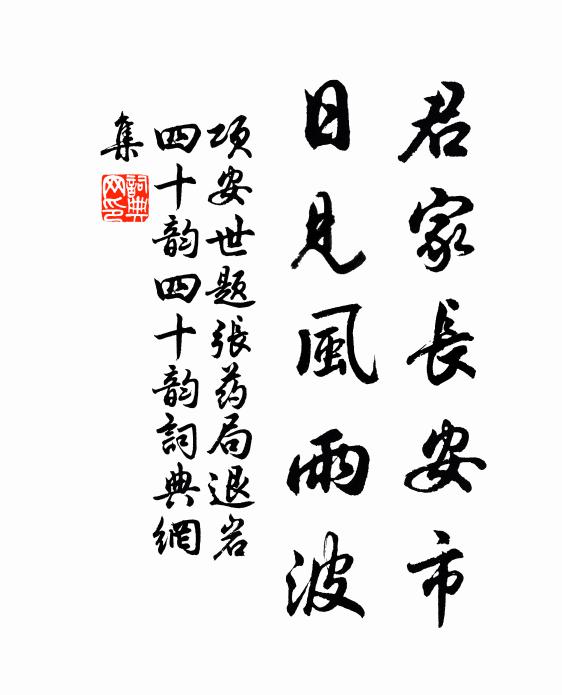 君家長安市
日見風雨波
项安世題張药局退岩
四十韵四十韵詞典網
集
詞典
网印